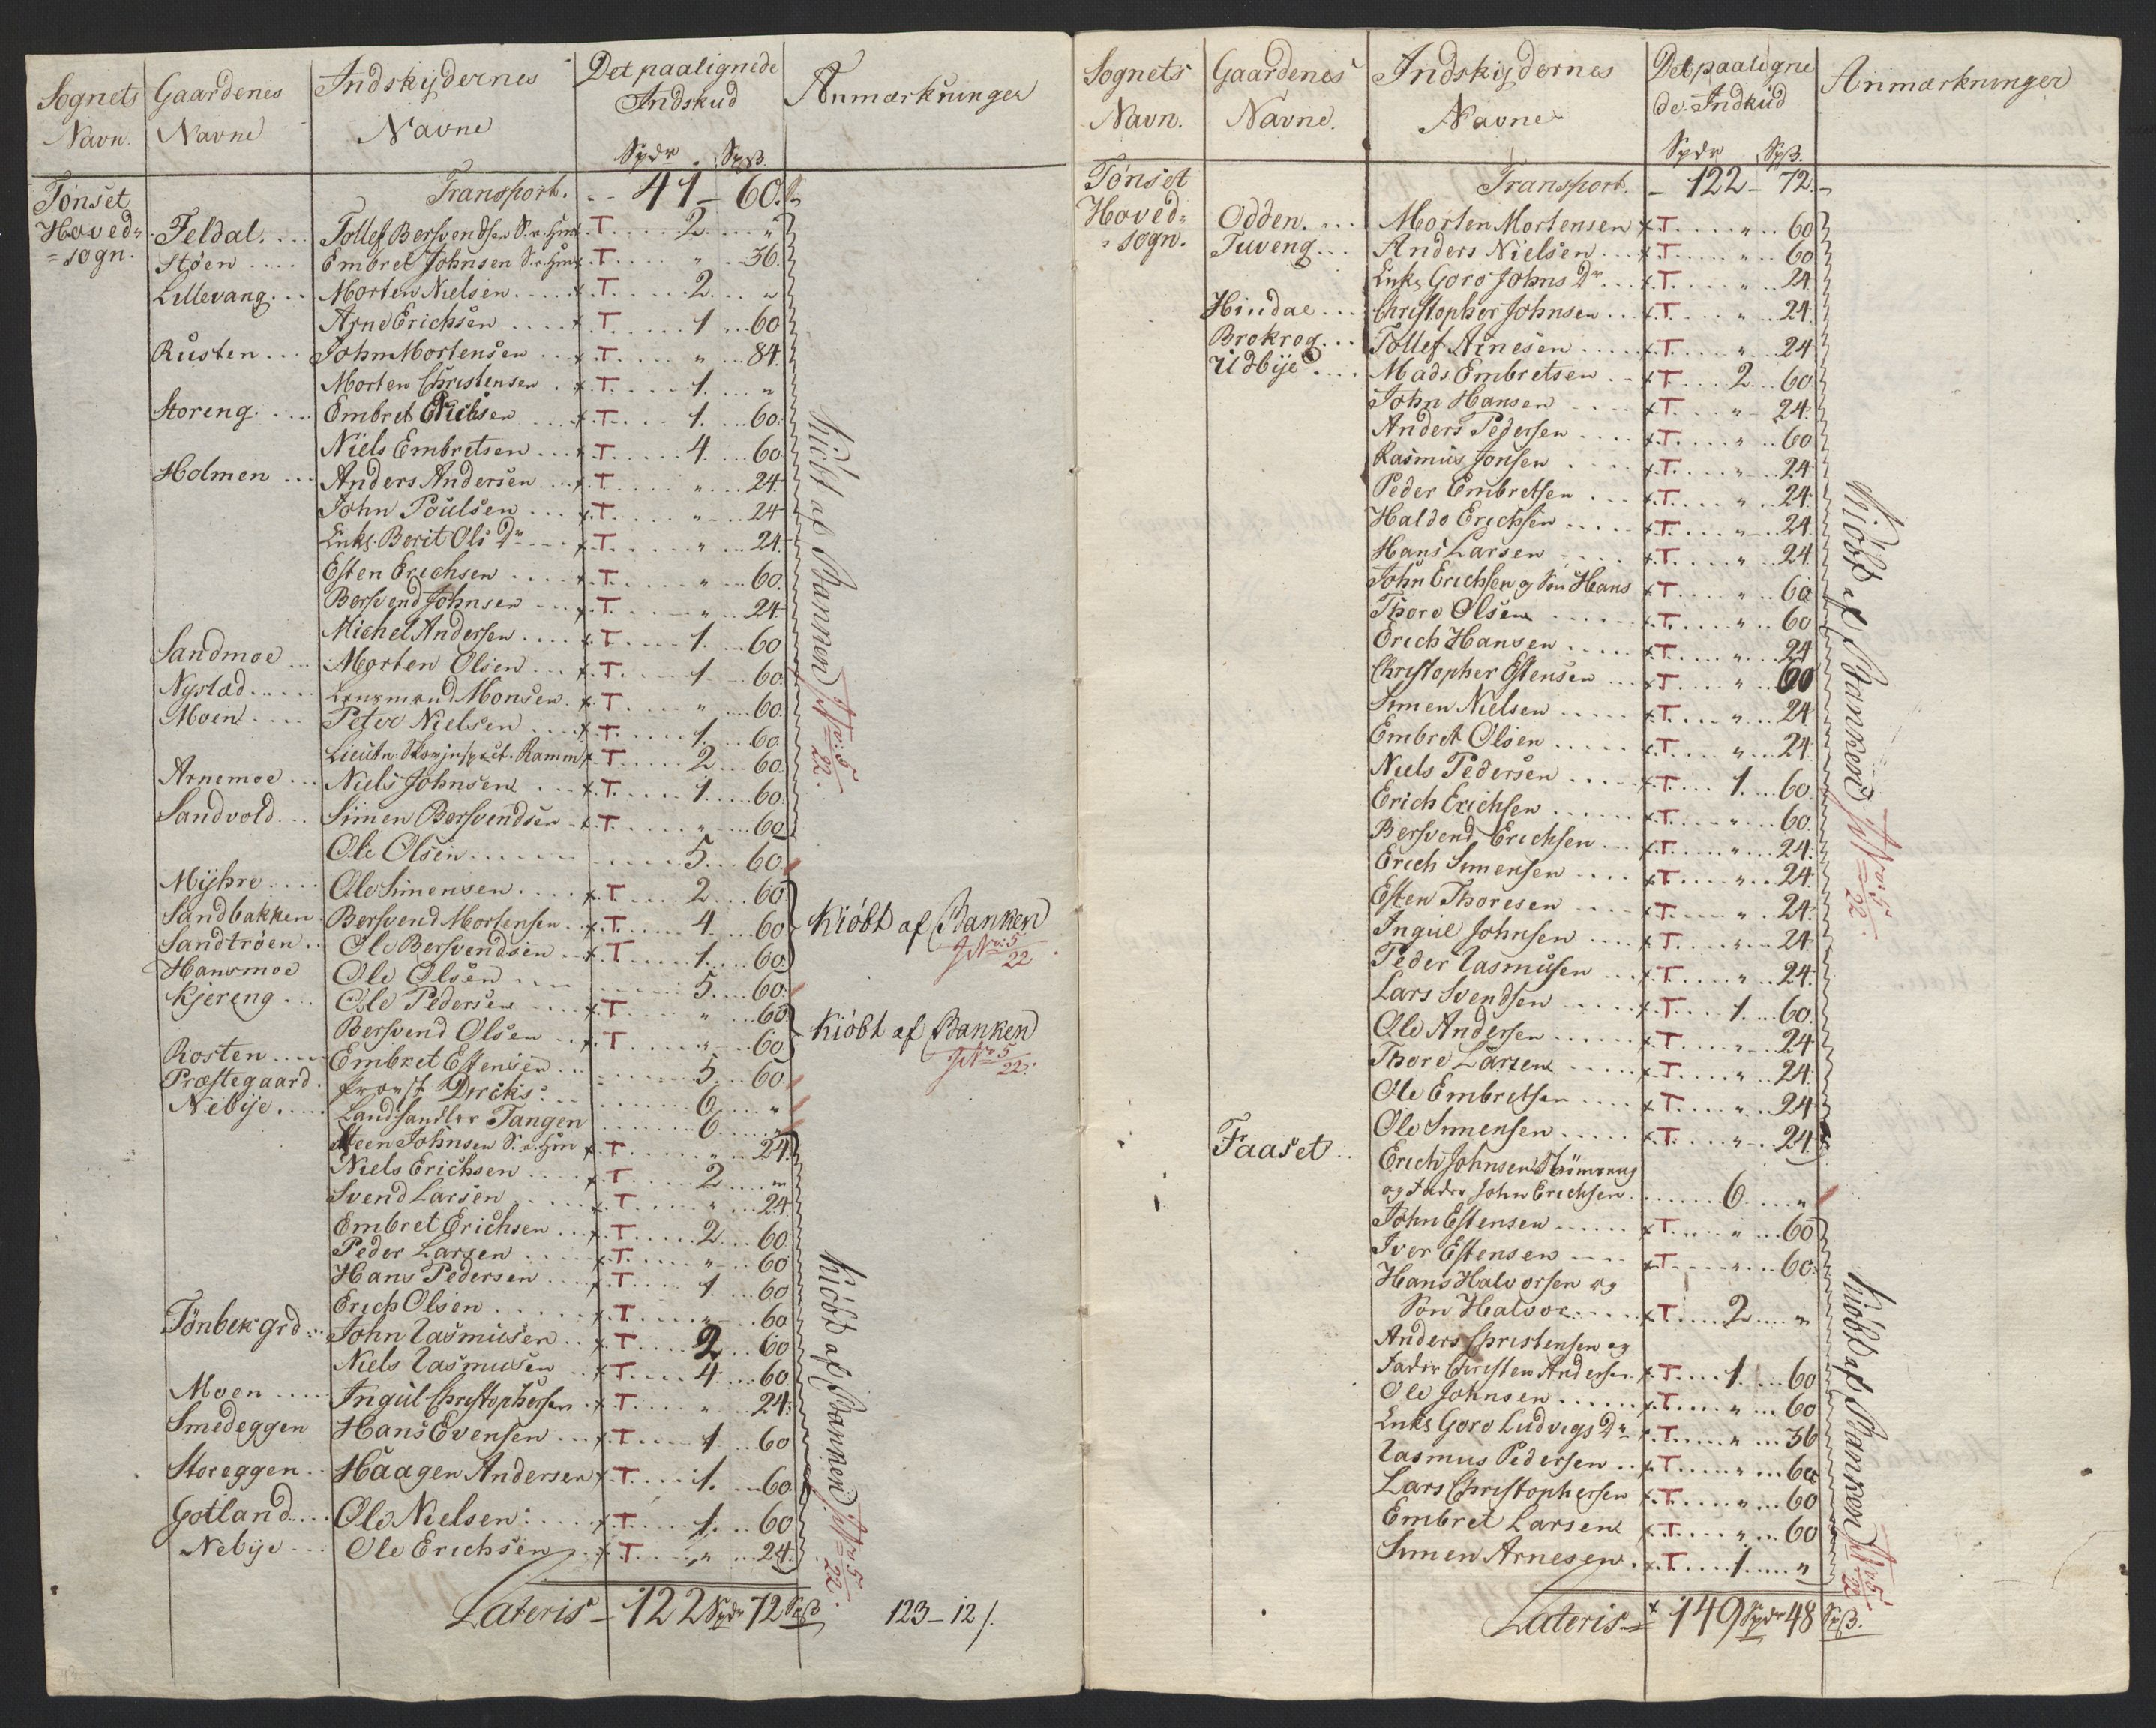 Sognets Navn. | Gaardenes Navne | Indskydernes Navne | Det paalignede Indskud | Anmærkninger
Spdr. Spß.
Transport. - 41 - 60.
Tönset Hoved= =sogn.
Feldal. Tollef Bersvendsen T. 2. "
Støen Embret Johnsen T. " 36.
Lillevang Morten Nielsen T. 2. "
Arne Erichsen T. 1 60
Rusten John Mortensen T. " 84.
Morten Christensen T. 1. "
Storeng. Embret Erichsen T. 1. 60.
Niels Embretsen T. 4. 60
Holmen Anders Andersen T. " 24.
John Poulsen T. " 24
Enke. Berit Ols Dr T. " 24.
Esten Erichsen T. " 60.
Bersvend Johnsen T. " 24.
Michel Andersen T. 1. 60
Sandmoe Morten Olsen T. 1 60.
Nystæd Lensmand Monsen T. " 60.
Moen Peter Nielsen T. 1. 60.
Lieutn. Ramm T. 2 60.
Arnemoe Niels Johnsen T. 1. 60.
Sandvold Simen Bersvendsen T. " 60
Ole Olsen 5. 60.
Kiøbt af Banken
No: 5
22.
Myhre Ole Simensen T. 2 60
Sandbakken Bersvend Mortensen T. 4. 60
Sandtröen Ole Bersvendsen T. 1. 60.
Kiøbt af Banken
No: 5
22
Hansmoe Ole Olsen 5. 60.
Kjereng Ole Pedersen T. " 60
Bersvend Olsen T. " 60
Kiøbt af Banken
No 5
22.
Rosten Embret Estensen 5. 60
Præstegaard. Provst Dircks: 6 "
Nebye Landhandler Tangen 6 "
Steen Johnsen T. " 24.
Niels Erichsen T. 2 "
Svend Larsen T. " 24.
Embret Erichsen T. 2 60
Peder Larsen T. " 60
Hans Pedersen T. 1. 60
Erich Olsen T. " 60
Tönbek grd: John Rasmusen T. 2 60
Niels Rasmusen T. 4. 60
Moen Ingul Christophersen T. " 24.
Smedeggen Hans Evensen T. 1 60
Storeggen Haagen Andersen T. 1. 60
Gotland Ole Nielsen: T. 1. 60
Nebye Ole Erichsen T. " 24.
Kiøbt af Banken
No 5
22.
Lateris - 122 Spdr 72 Spß
123 - 12 /.
Sognets Navn. | Gaardenes Navne. | Indskydernes Navne | Det paaligne de. Indkud | Anmærkninger
Spdr Spß.
Transport. - 122 - 72.
Tönset Hoved= =sogn.
Odden. Morten Mortensen T. " 60
Tuveng Anders Nielsen T. " 60
Enke Goro Johns Dr T. " 24
Hindal Christopher Johnsen T. " 24.
Brokrog Tollef Arnesen T. " 24
Udbye Mads Embretsen T. 2 60
John Hansen T. " 24.
Anders Pedersen T. " 60
Rasmus Jonsen T. " 24.
Peder Embretsen T. " 24.
Haldo Erichsen T. " 24
Hans Larsen T. " 24.
John Erichsen og Søn Hans T. " 60
Thore Olsen T. " 60
Erich Hansen T. " 24
Christopher Estensen T. " 60
Simen Nielsen T. " 24
Embret Olsen T. " 24.
Niels Pedersen T. 1. 60.
Erich Erichsen T. " 60.
Bersvend Erichsen T. " 24.
Erich Simensen T. " 24.
Esten Thoresen T. " 24.
Ingul Johnsen T. " 24.
Peder Rasmusen T. " 24.
Lars Svendsen T. 1. 60.
Ole Andersen T. " 24
Thore Larsen T. " 24.
Ole Embretsen T. " 24
Ole Simensen T. " 24.
Kiøbt af Banken
No: 5
22.
Faaset Erich Johnsen
og Fader John Erichsen 6 "
John Estensen T. " 60
Iver Estensen T. " 60.
Hans Halvorsen og
Søn Halvor T. 2 "
Anders Christensen og
Fader Christen Andersen T. 1. 60
Ole Johnsen T. " 60
Enke Goro Ludvigs Dr T. " 36
Rasmus Pedersen T. " 60
Lars Christophersen T. " 60
Embret Larsen T. " 60
Simen Arnesen T. 1 "
Kiøbt af Banken
No 5
22
Lateris - 149 Spdr 48 Spß.